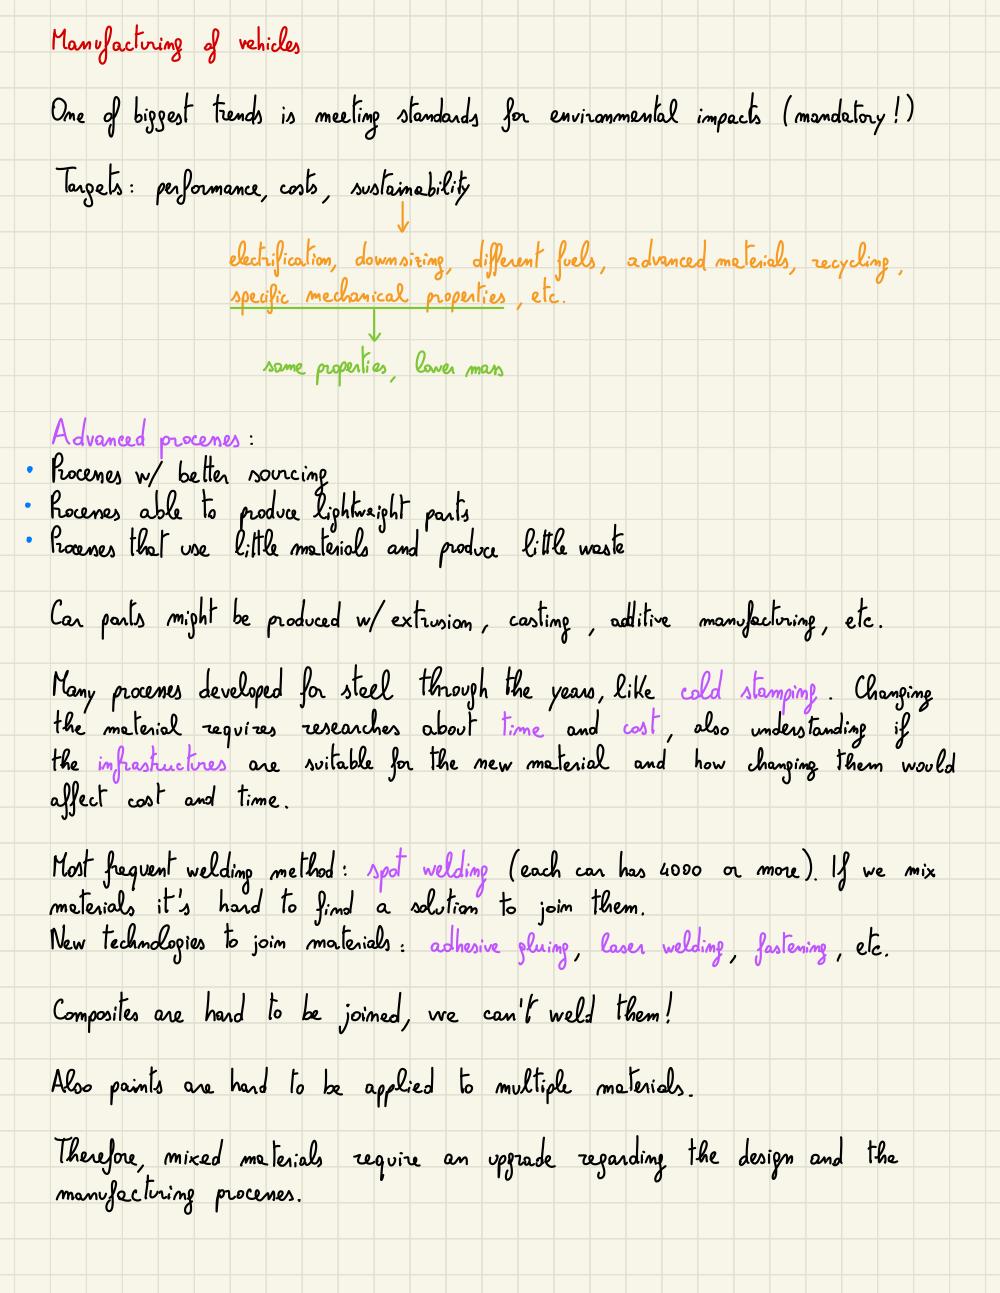 Manufacturing of vehicles
One of biggest trends is meeting standards for environmental impacts (mandatory!)
Targets: performance, costs, sustainability
electrification, downsizing, different fuels, advanced materials, recycling,
specific mechanical properties, etc.
same properties, lower mass
Advanced processes:
• Processes w/ better sourcing
• Processes able to produce lightweight parts
• Processes that use little materials and produce little waste
Car parts might be produced w/ extrusion, casting, additive manufacturing, etc.
Many processes developed for steel through the years, like cold stamping. Changing
the material requires researches about time and cost, also understanding if
the infrastructures are suitable for the new material and how changing them would
affect cost and time.
Most frequent welding method: spot welding (each car has 4000 or more). If we mix
materials it's hard to find a solution to join them.
New technologies to join materials: adhesive gluing, laser welding, fastening, etc.
Composites are hard to be joined, we can't weld them!
Also paints are hard to be applied to multiple materials.
Therefore, mixed materials require an upgrade regarding the design and the
manufacturing processes.